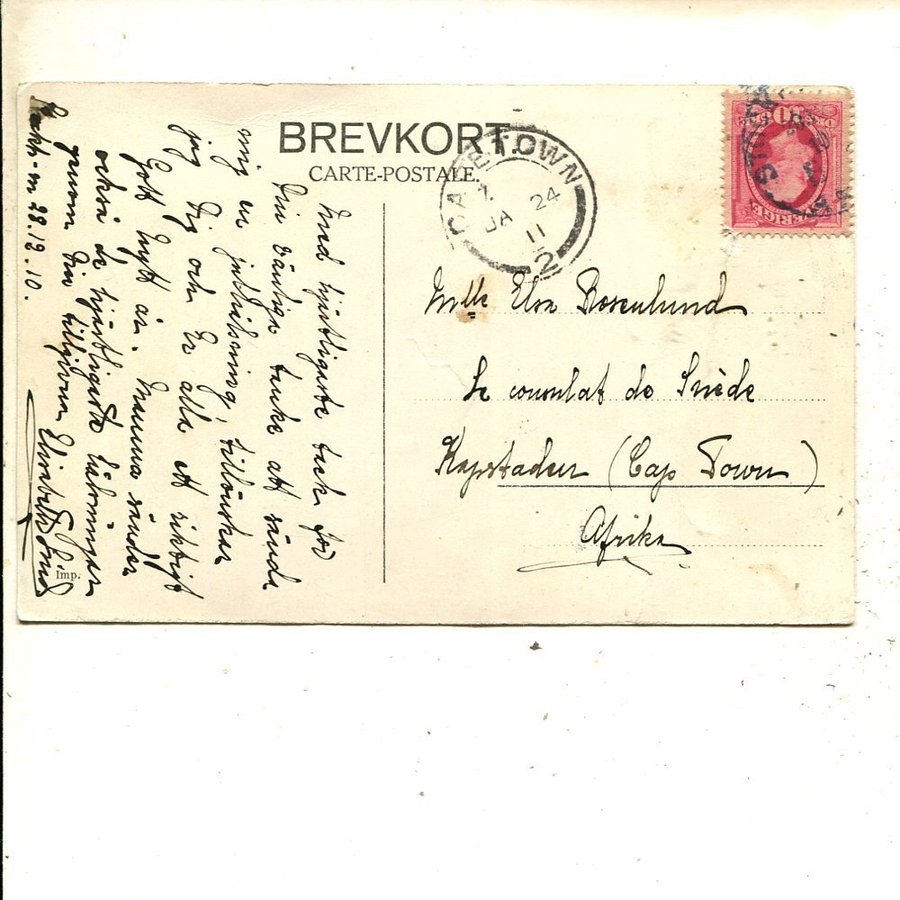 BREVKORT.
CARTE-POSTALE.
CAPE TOWN
7.
JA 24
11
2
10
SVERIGE
STOCKHOLM
Med hjertligaste tack för
Din vänliga tanke att sända
mig en julhälsning, tillönskar
jag Dig och Er alla ett riktigt
Godt Nytt år. Mamma sänder
också de hjertligaste hälsningar
genom Din tillgivna Elisabeth
28.12.10.
Imp.
Mlle Elsa Rosenlund
Le consulat de Suède
Kapstaden (Cap Town)
Afrika